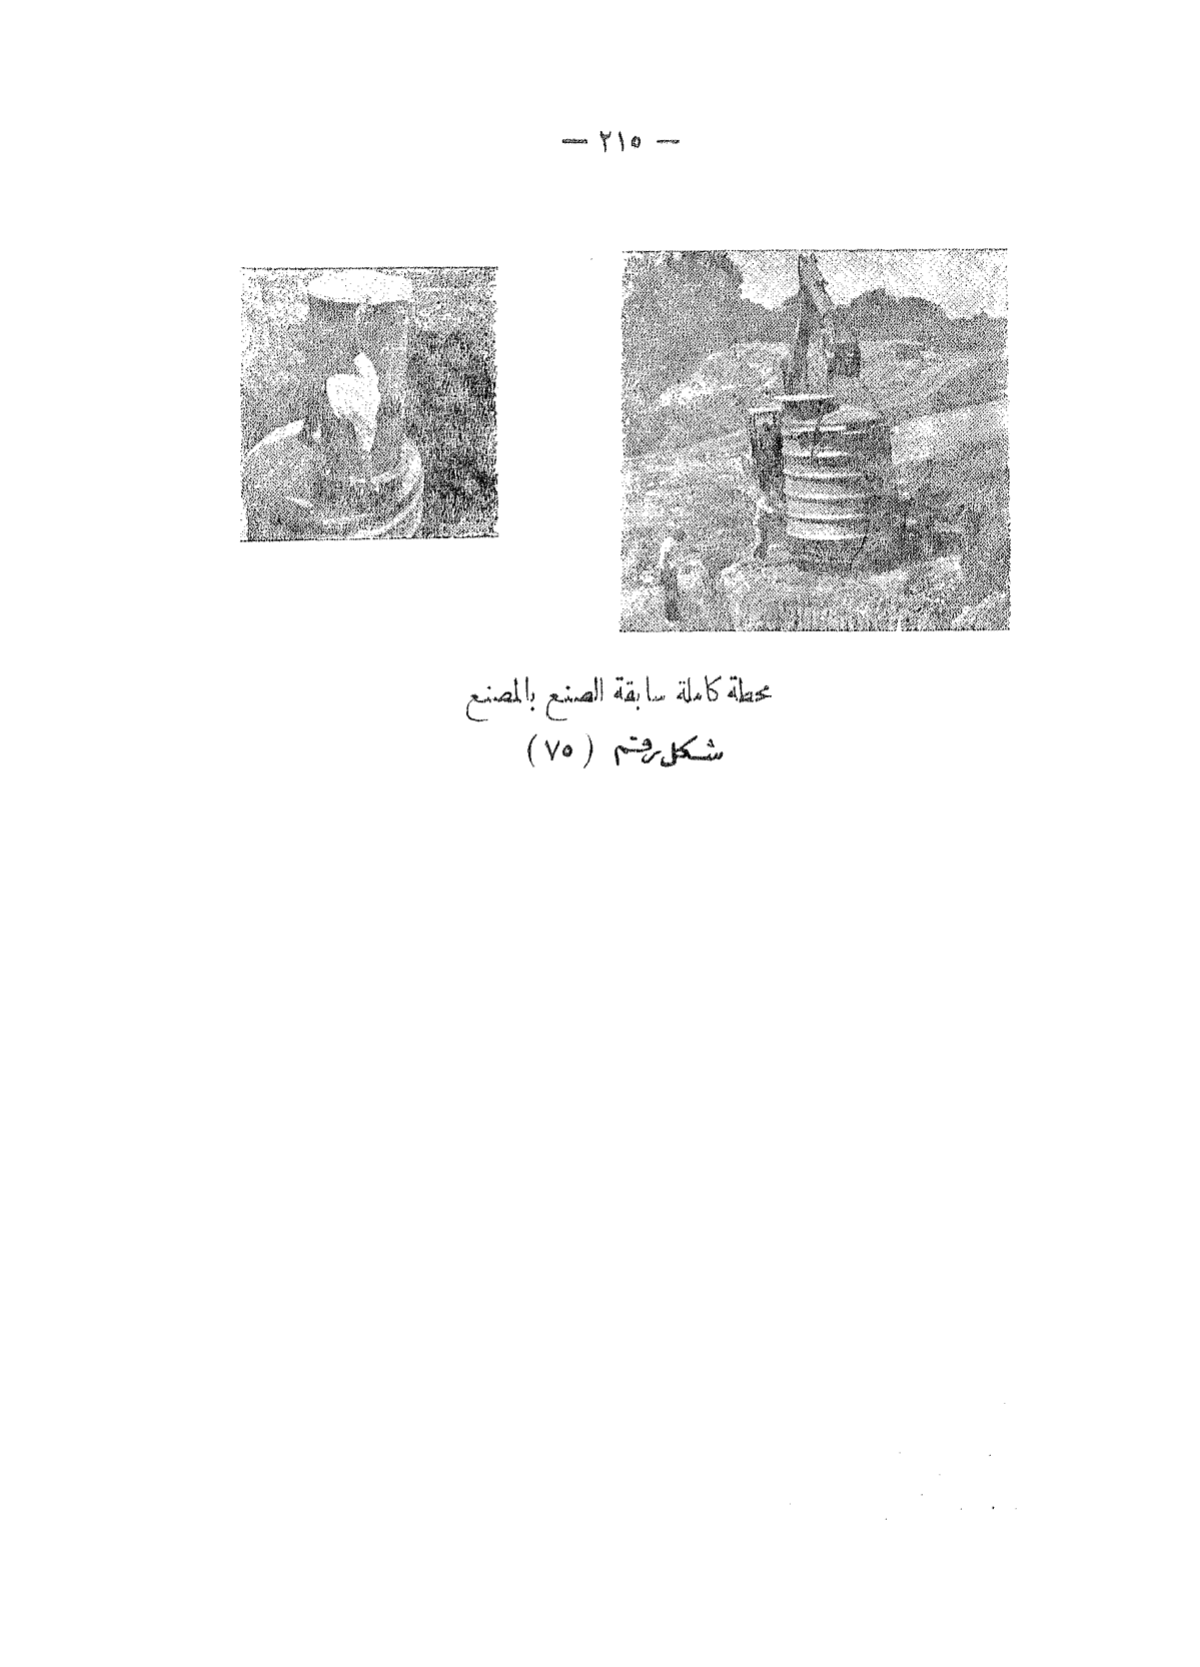 — ٢١٥ —
محطة كاملة سابقة الصنع بالمصنع
شكل رقم ( ٧٥ )